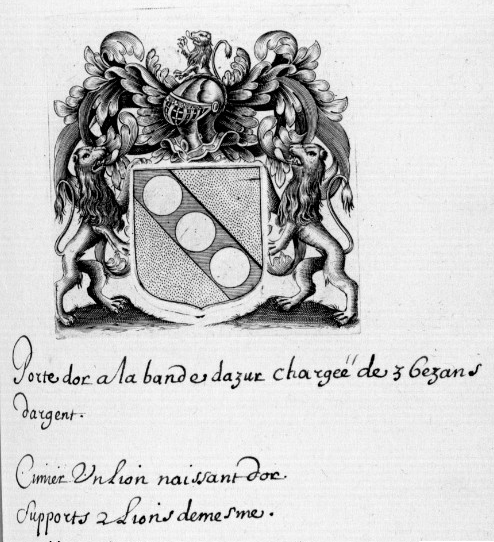 Porte dor a la bande dazur chargeë de 3 bezans
dargent.
Cimier Un Lion naissant dor.
Supports 2 Lions demesme.